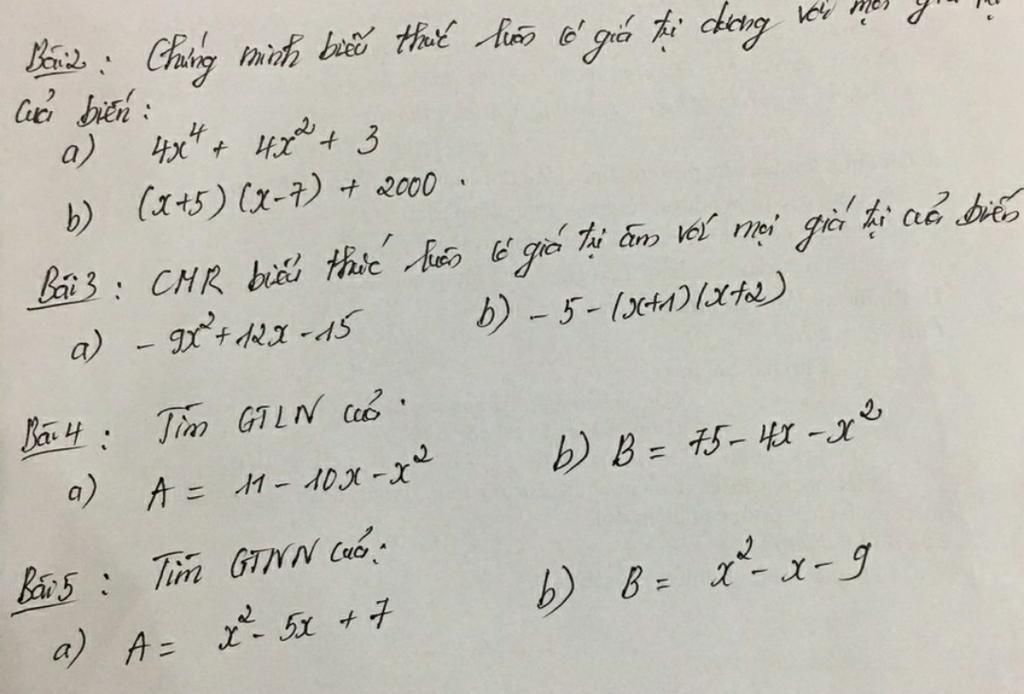 Bài 2 : Chứng minh biểu thức luôn có giá trị dương với mọi giá trị
của biến :
a) 4x⁴ + 4x² + 3
b) (x+5) (x-7) + 2000 .
Bài 3 : CMR biểu thức luôn có giá trị âm với mọi giá trị của biến
a) - 9x² + 12x - 15 b) - 5 - (x+1) (x+2)
Bài 4 : Tìm GTLN của .
a) A = 11 - 10x - x² b) B = 75 - 4x - x²
Bài 5 : Tìm GTNN của :
a) A = x² - 5x + 7 b) B = x² - x - 9